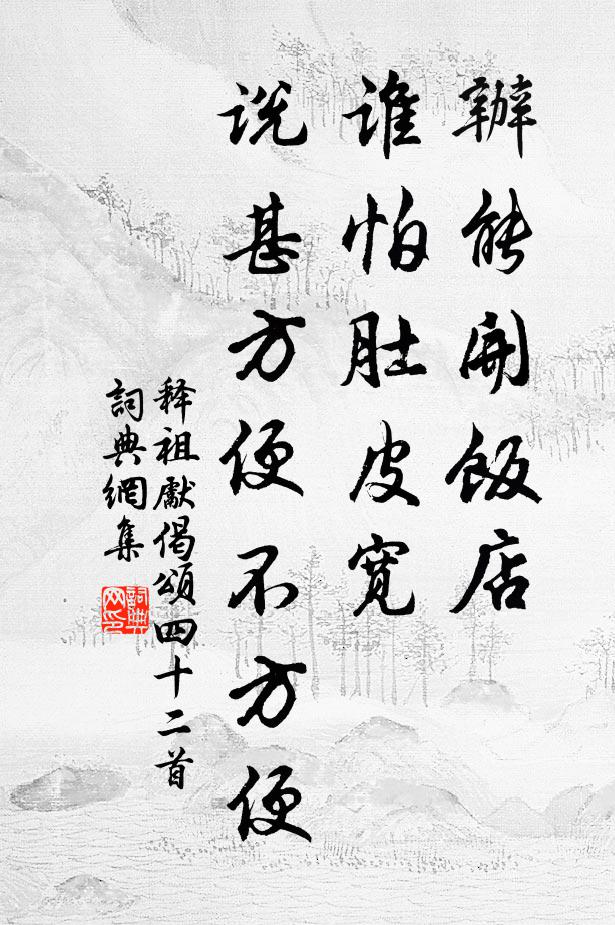 辦能開飯店
誰怕肚皮寬
説甚方便不方便
释祖獻偈頌四十二首
詞典網集
詞典網印